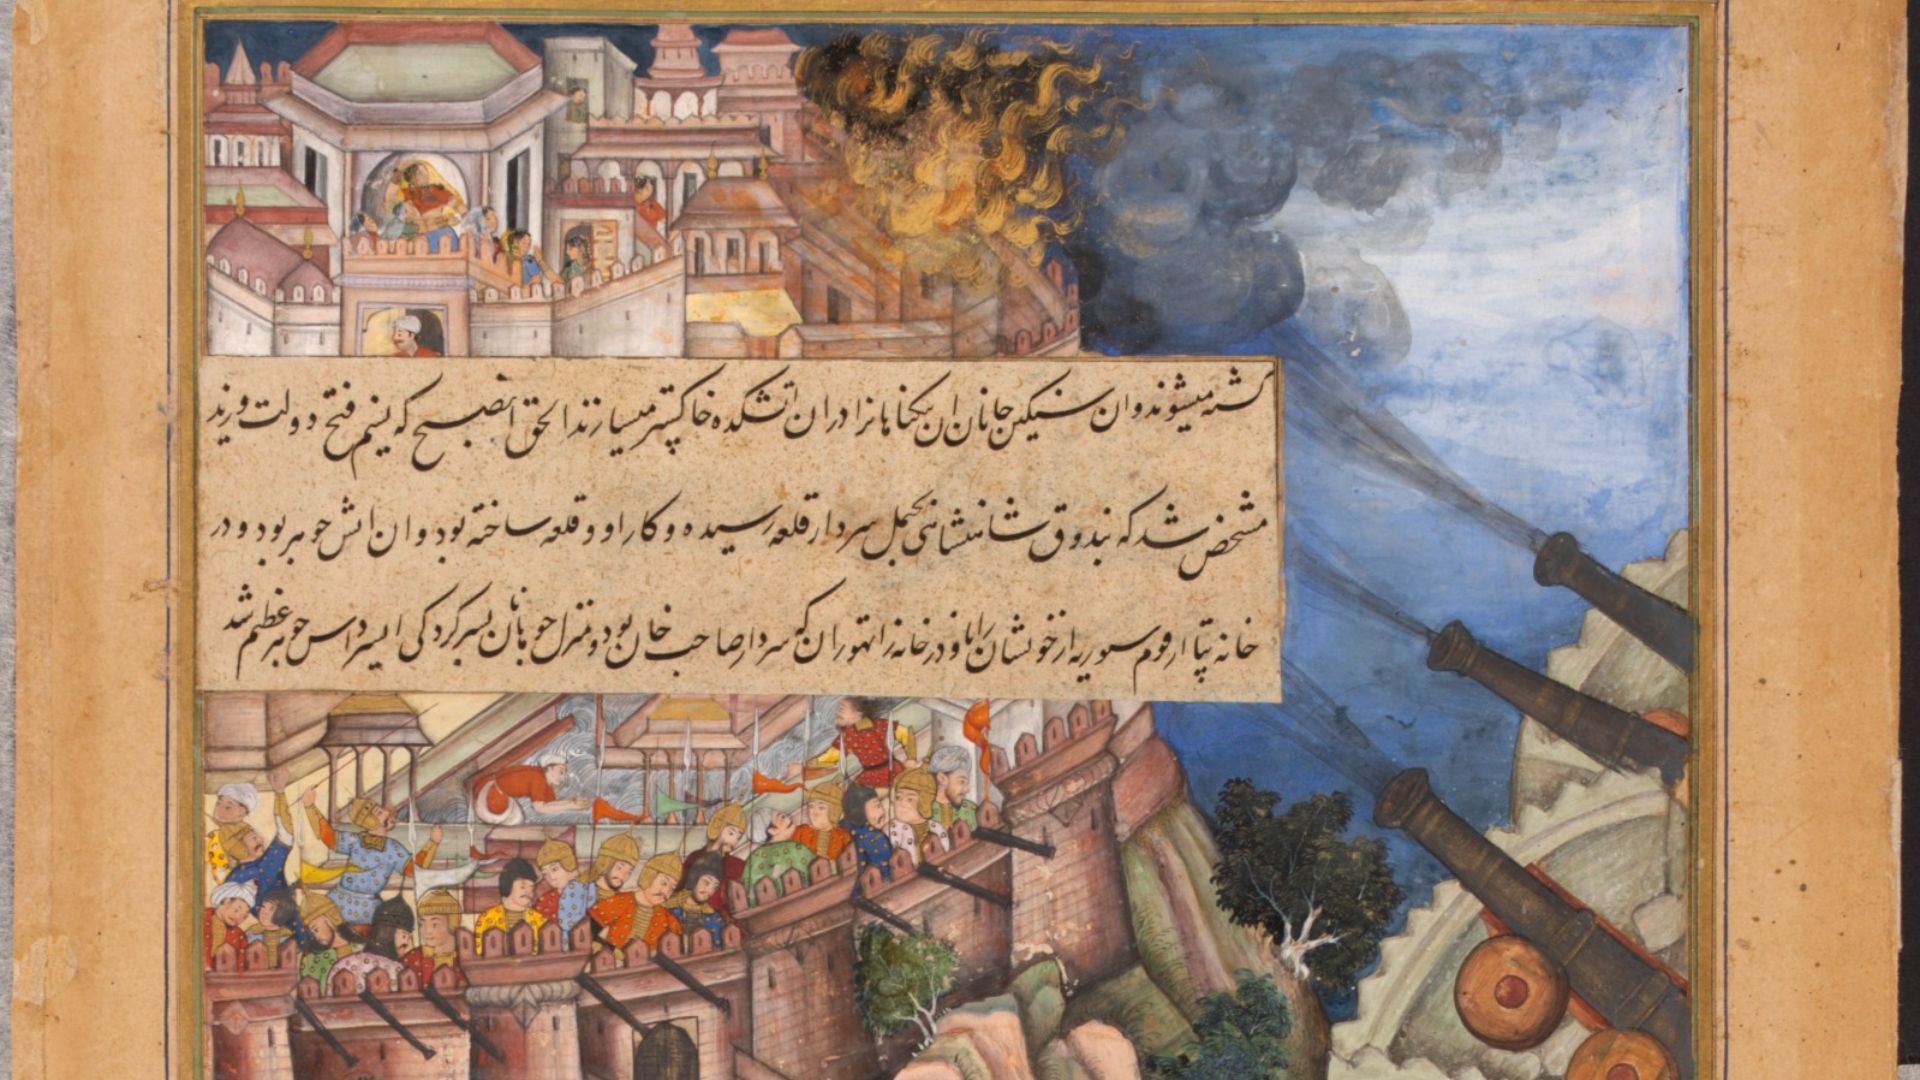 کشته میشوند و ان سنگین جانان ان بیکناهانرا در ان اتشکده خاکستر میسازند الحق انصبح که نسیم فتح دولت وزید
مشخص شد که بندوق شاهنشاهی بجیمل سردار قلعه رسیده و کار او و قلعه ساخته بود و ان اتش جوهر بود و در
خانه پتا از قوم سیسودیه از خویشان رانا و در خانه راتهوران که سردار صاحب خان بود و منزل چوهانان بسر کردکی ایسرداس جوهر عظیم شد